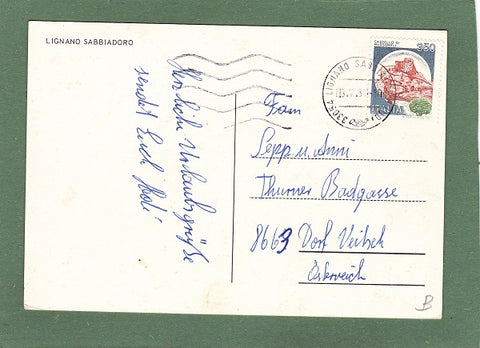 LIGNANO SABBIADORO
Herzliche Urlaubsgrüße
sendet Euch
350
ITALIA
33054 LIGNANO SAB
Fam
Sepp u. Anni
Thurner Badgasse
8663 Dorf Veitsch
Österreich
B